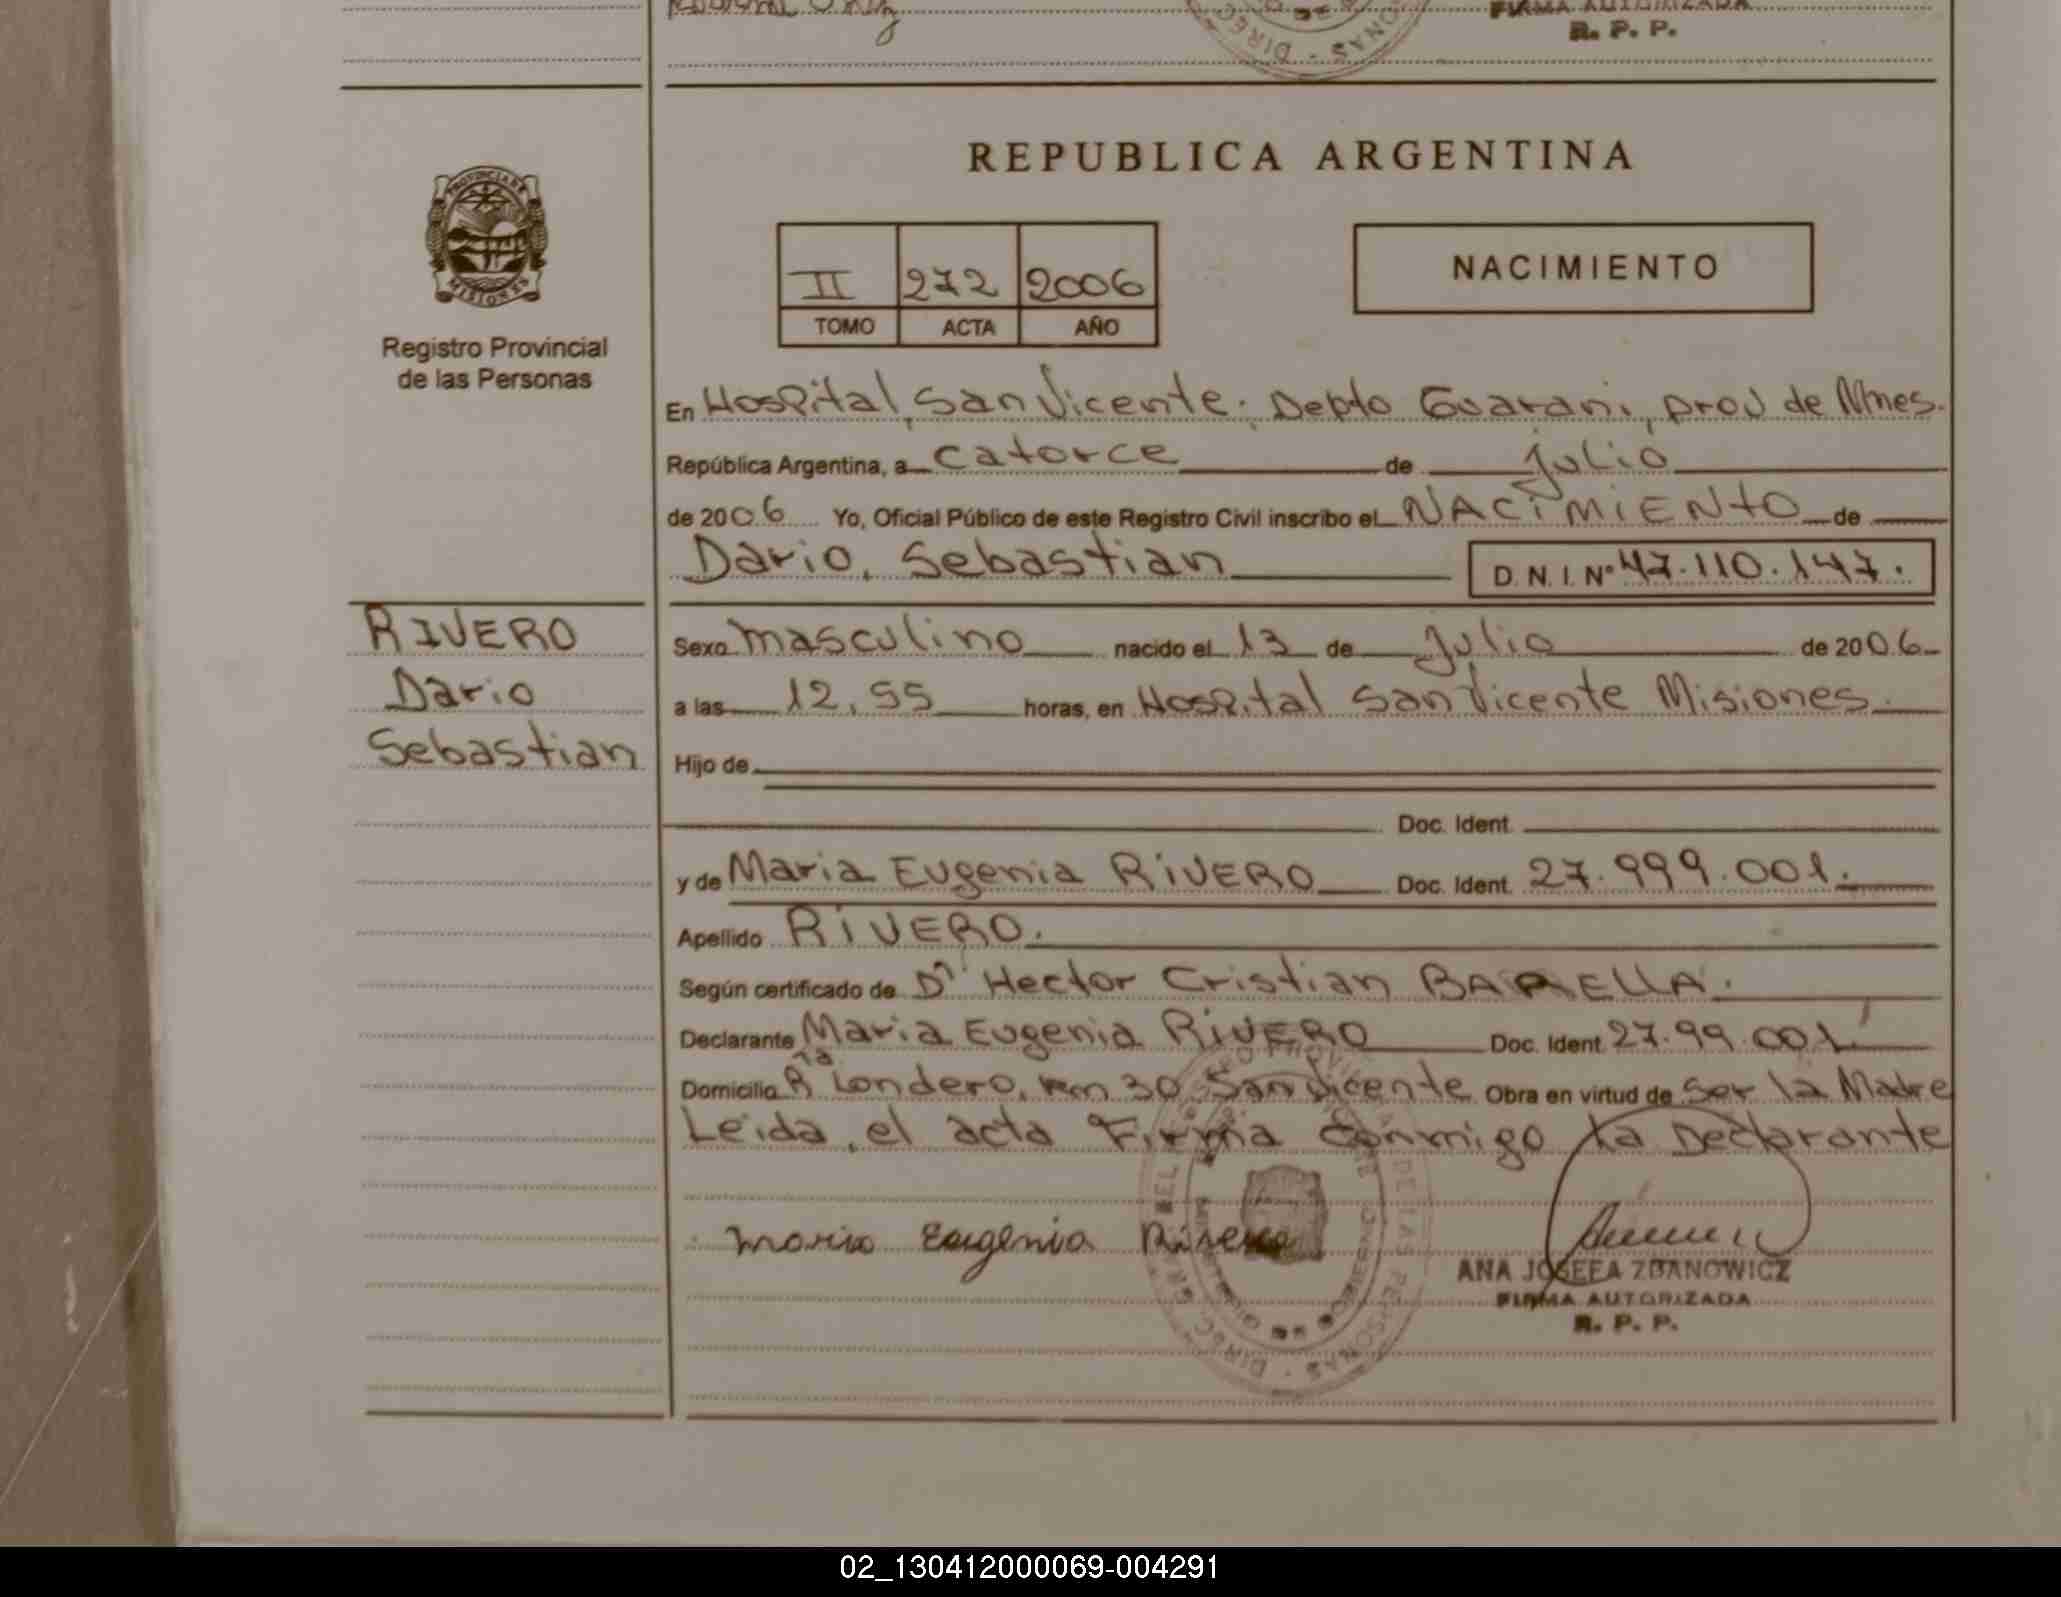 FIRMA AUTORIZADA
R. P. P.
PROVINCIA DE
MISIONES
Registro Provincial
de las Personas
REPUBLICA ARGENTINA
II 272 2006
TOMO ACTA AÑO
NACIMIENTO
En Hospital, San Vicente. Depto Guarani, prov de Mnes.
República Argentina, a catorce de julio
de 2006 Yo, Oficial Público de este Registro Civil inscribo el NACIMIENTO de
Dario, Sebastian D. N. I. Nº 47.110.147.
RIVERO
Dario
Sebastian
Sexo masculino nacido el 13 de julio de 2006
a las 12,55 horas, en Hospital San Vicente Misiones.
Hijo de
Doc. Ident.
y de Maria Eugenia RIVERO Doc. Ident. 27.999.001.
Apellido RIVERO.
Según certificado de Dr Hector Cristian BARELLA.
Declarante Maria Eugenia RIVERO Doc. Ident. 27.99.001.
Domicilio Rta Londero, Km 30 San Vicente Obra en virtud de ser la Madre
Leida, el acta Firma conmigo La Declarante
Maria Eugenia Rivero
ANA JOSEFA ZDANOWICZ
FIRMA AUTORIZADA
R. P. P.
02_130412000069-004291